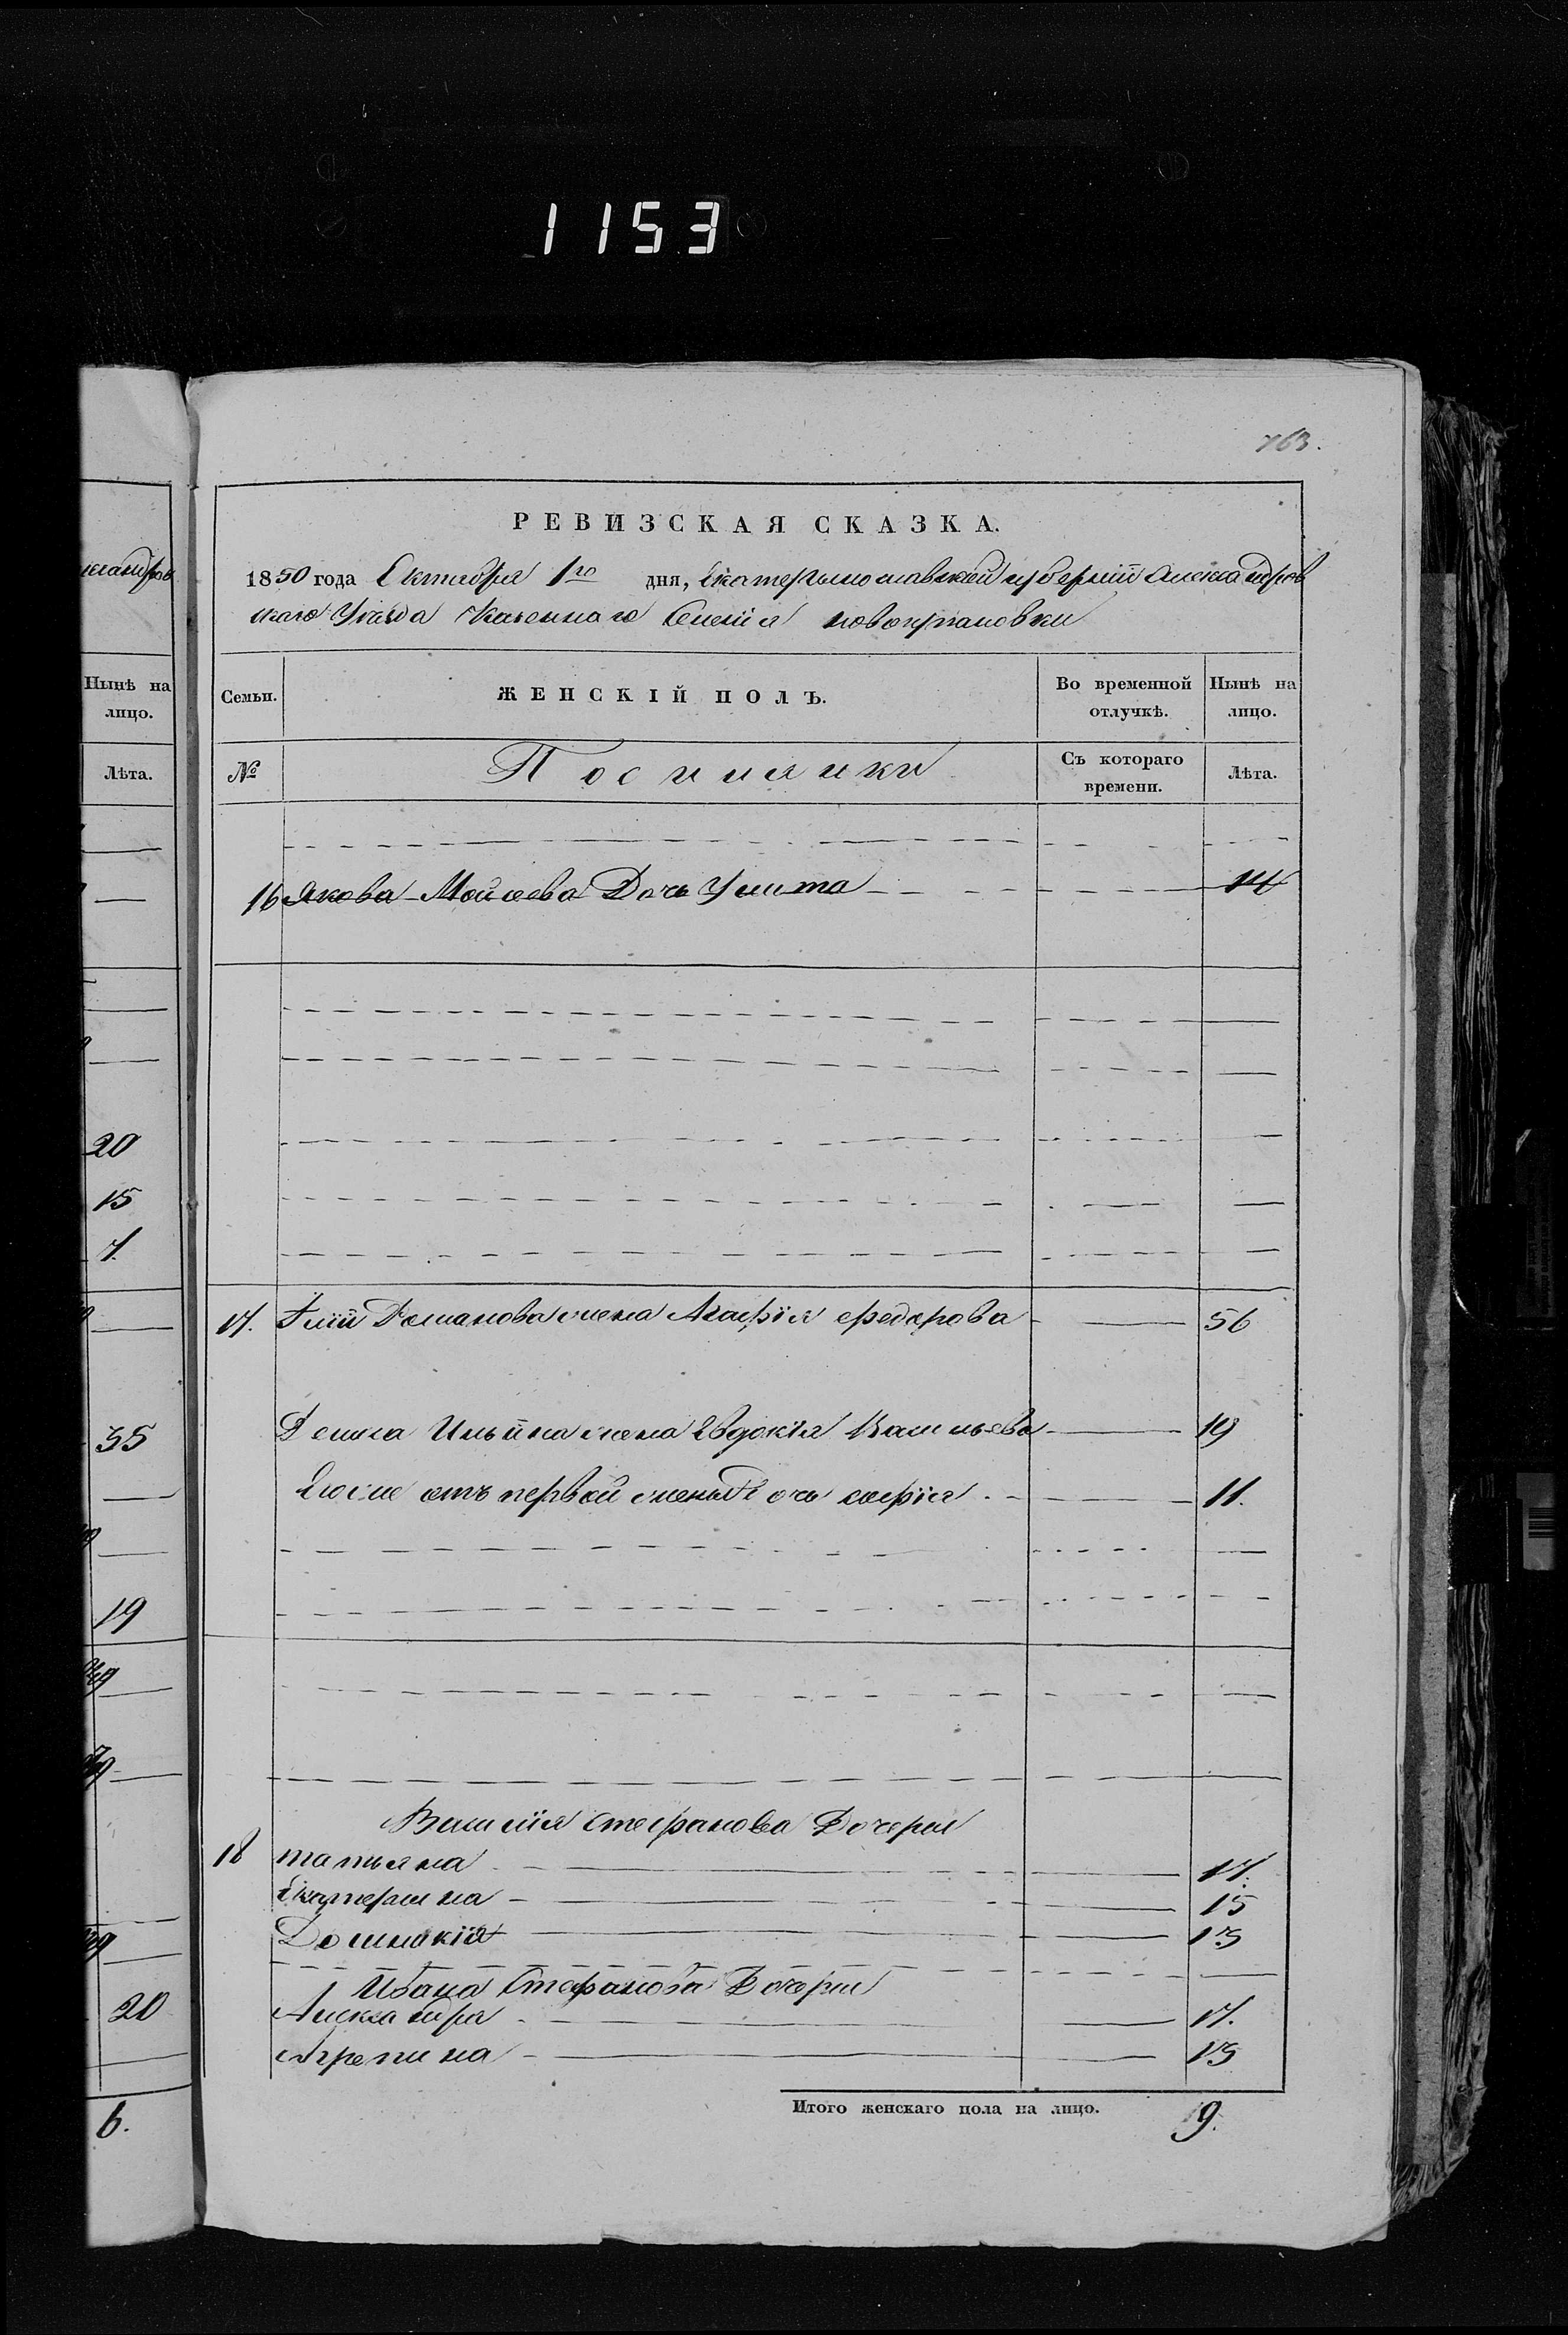 1153
763.
РЕВИЗСКАЯ СКАЗКА.
1850 года Октября 1го дня, Екатеринославской губерніи Александров
скаго Уѣзда Казеннаго Селенія новогупаловки
Нынѣ на лицо.
Лѣта.
Семьи.
ЖЕНСКІЙ ПОЛЪ.
Во временной отлучкѣ.
Нынѣ на лицо.
№
Поселяики
Съ котораго времени.
Лѣта.
16 Якова Мойсеева Дочь Улита 14
20
15
7.
17. Иліи Романова жена Агафія федорова 56
35
Дениса Ильина жена Евдокія Васильева 19
Его же отъ первой жены Дочь софія 11.
19
Василія Стефанова Дочери
18 татьяна 17.
Екатерина 15
Домникія 13
Ивана Стефанова Дочери
20
Александра 17.
Агрепина 13
Итого женскаго пола на лицо. 9.
6.